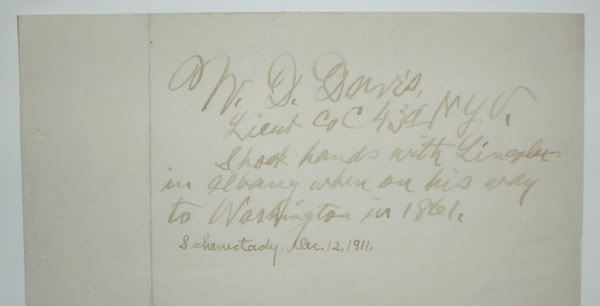 W. D. Davis,
Lieut Co C 43d N.Y.V.
Shook hands with Lincoln
in Albany when on his way
to Washington in 1861.
Schenectady, Dec. 12, 1911.